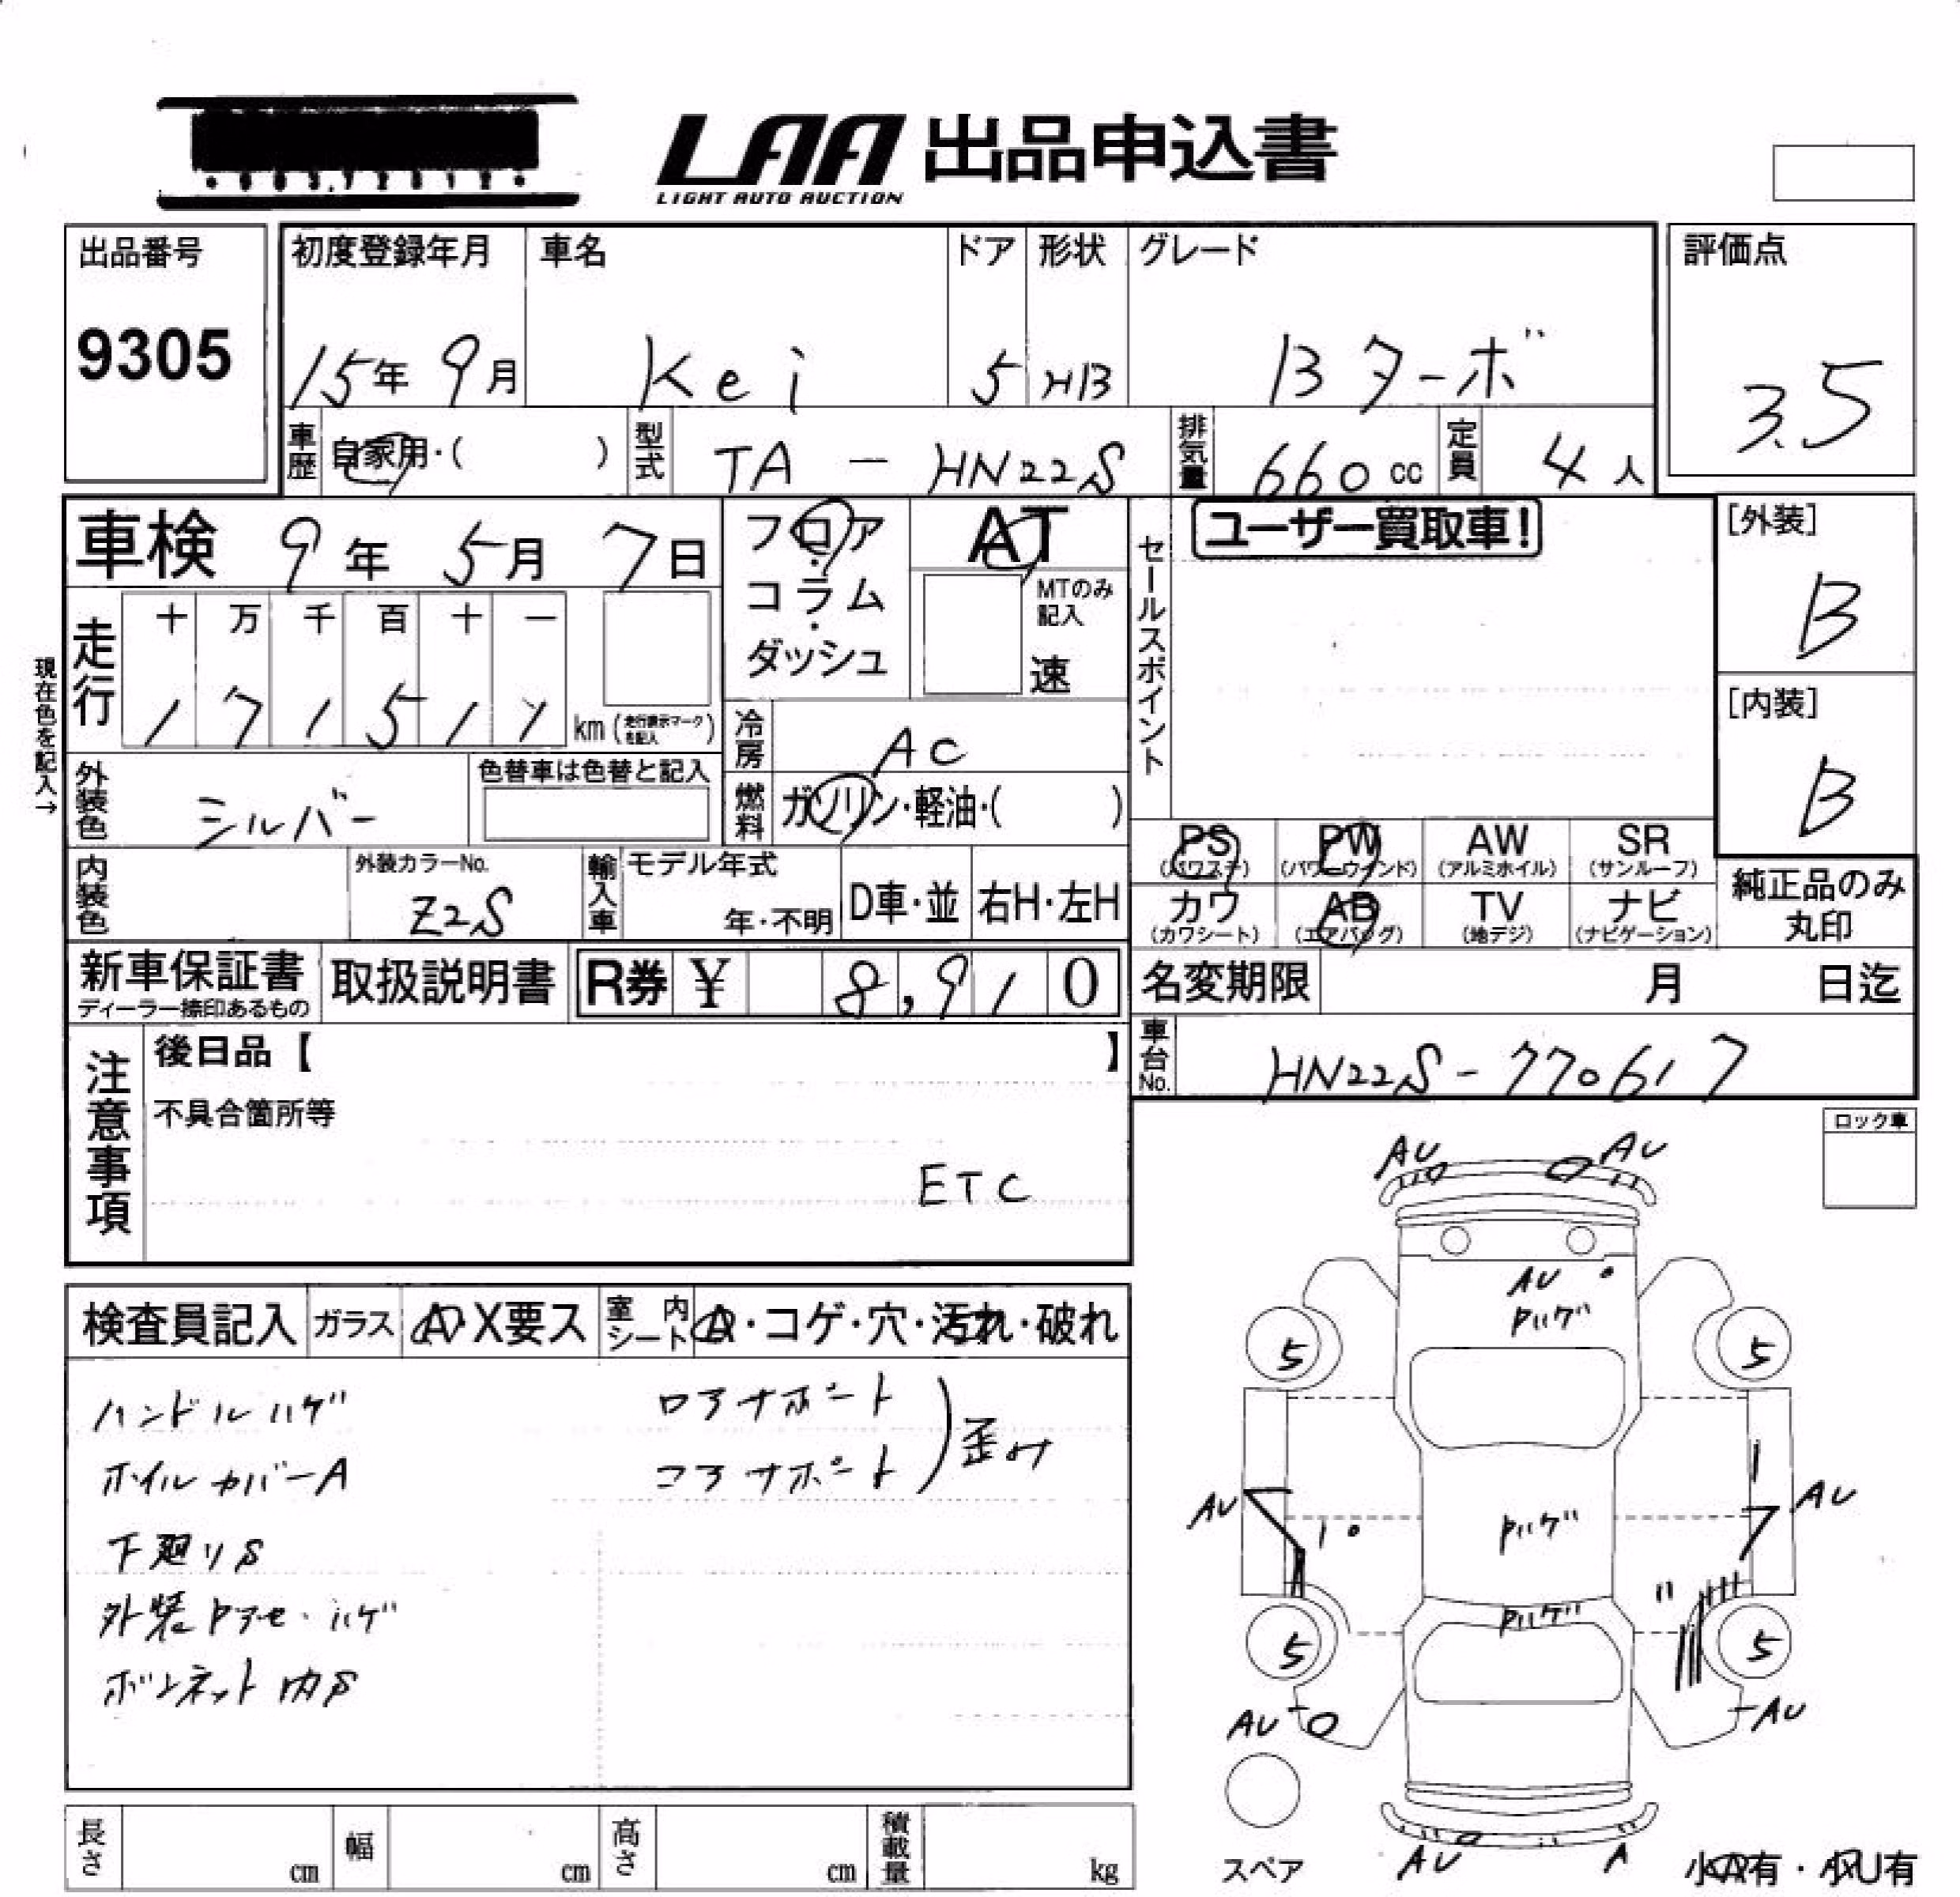 LAA 出品申込書
LIGHT AUTO AUCTION
出品番号
9305
初度登録年月
15年 9月
車名
Kei
ドア
5
形状
HB
グレード
Bターボ
評価点
3.5
車歴 自家用・( )
型式 TA - HN22S
排気量 660 cc
定員 4 人
車検 9年 5月 7日
フロア・コラム・ダッシュ
AT
MTのみ記入
速
セールスポイント
ユーザー買取車!
[外装]
B
[内装]
B
現在色を記入→
走行
十 万 千 百 十 一
1 7 1 5 1 7 km (走行表示マークを記入)
冷房 AC
外装色 シルバー
色替車は色替と記入
燃料 ガソリン・軽油・( )
PS (パワステ)
PW (パワーウインド)
AW (アルミホイル)
SR (サンルーフ)
カワ (カワシート)
AB (エアバッグ)
TV (地デジ)
ナビ (ナビゲーション)
純正品のみ丸印
内装色
外装カラーNo.
Z2S
輸入車
モデル年式
年・不明
D車・並
右H・左H
新車保証書
ディーラー捺印あるもの
取扱説明書
R券 ¥ 8,910
名変期限 月 日迄
車台No. HN22S-770617
注意事項
後日品【 】
不具合箇所等
ETC
ロック車
検査員記入
ガラス A X要ス
室内シート A・コゲ・穴・汚れ・破れ
ハンドルハゲ
ホイルカバーA
下廻りS
外装Pアセ・ハゲ
ボンネット内S
ロアサポート
コアサポート
歪み
AU AU
AU
Pハゲ
5 5
AU AU
Pハゲ
Pハゲ
5 5
AU AU
AU A
スペア
小A有・小U有
長さ cm
幅 cm
高さ cm
積載量 kg